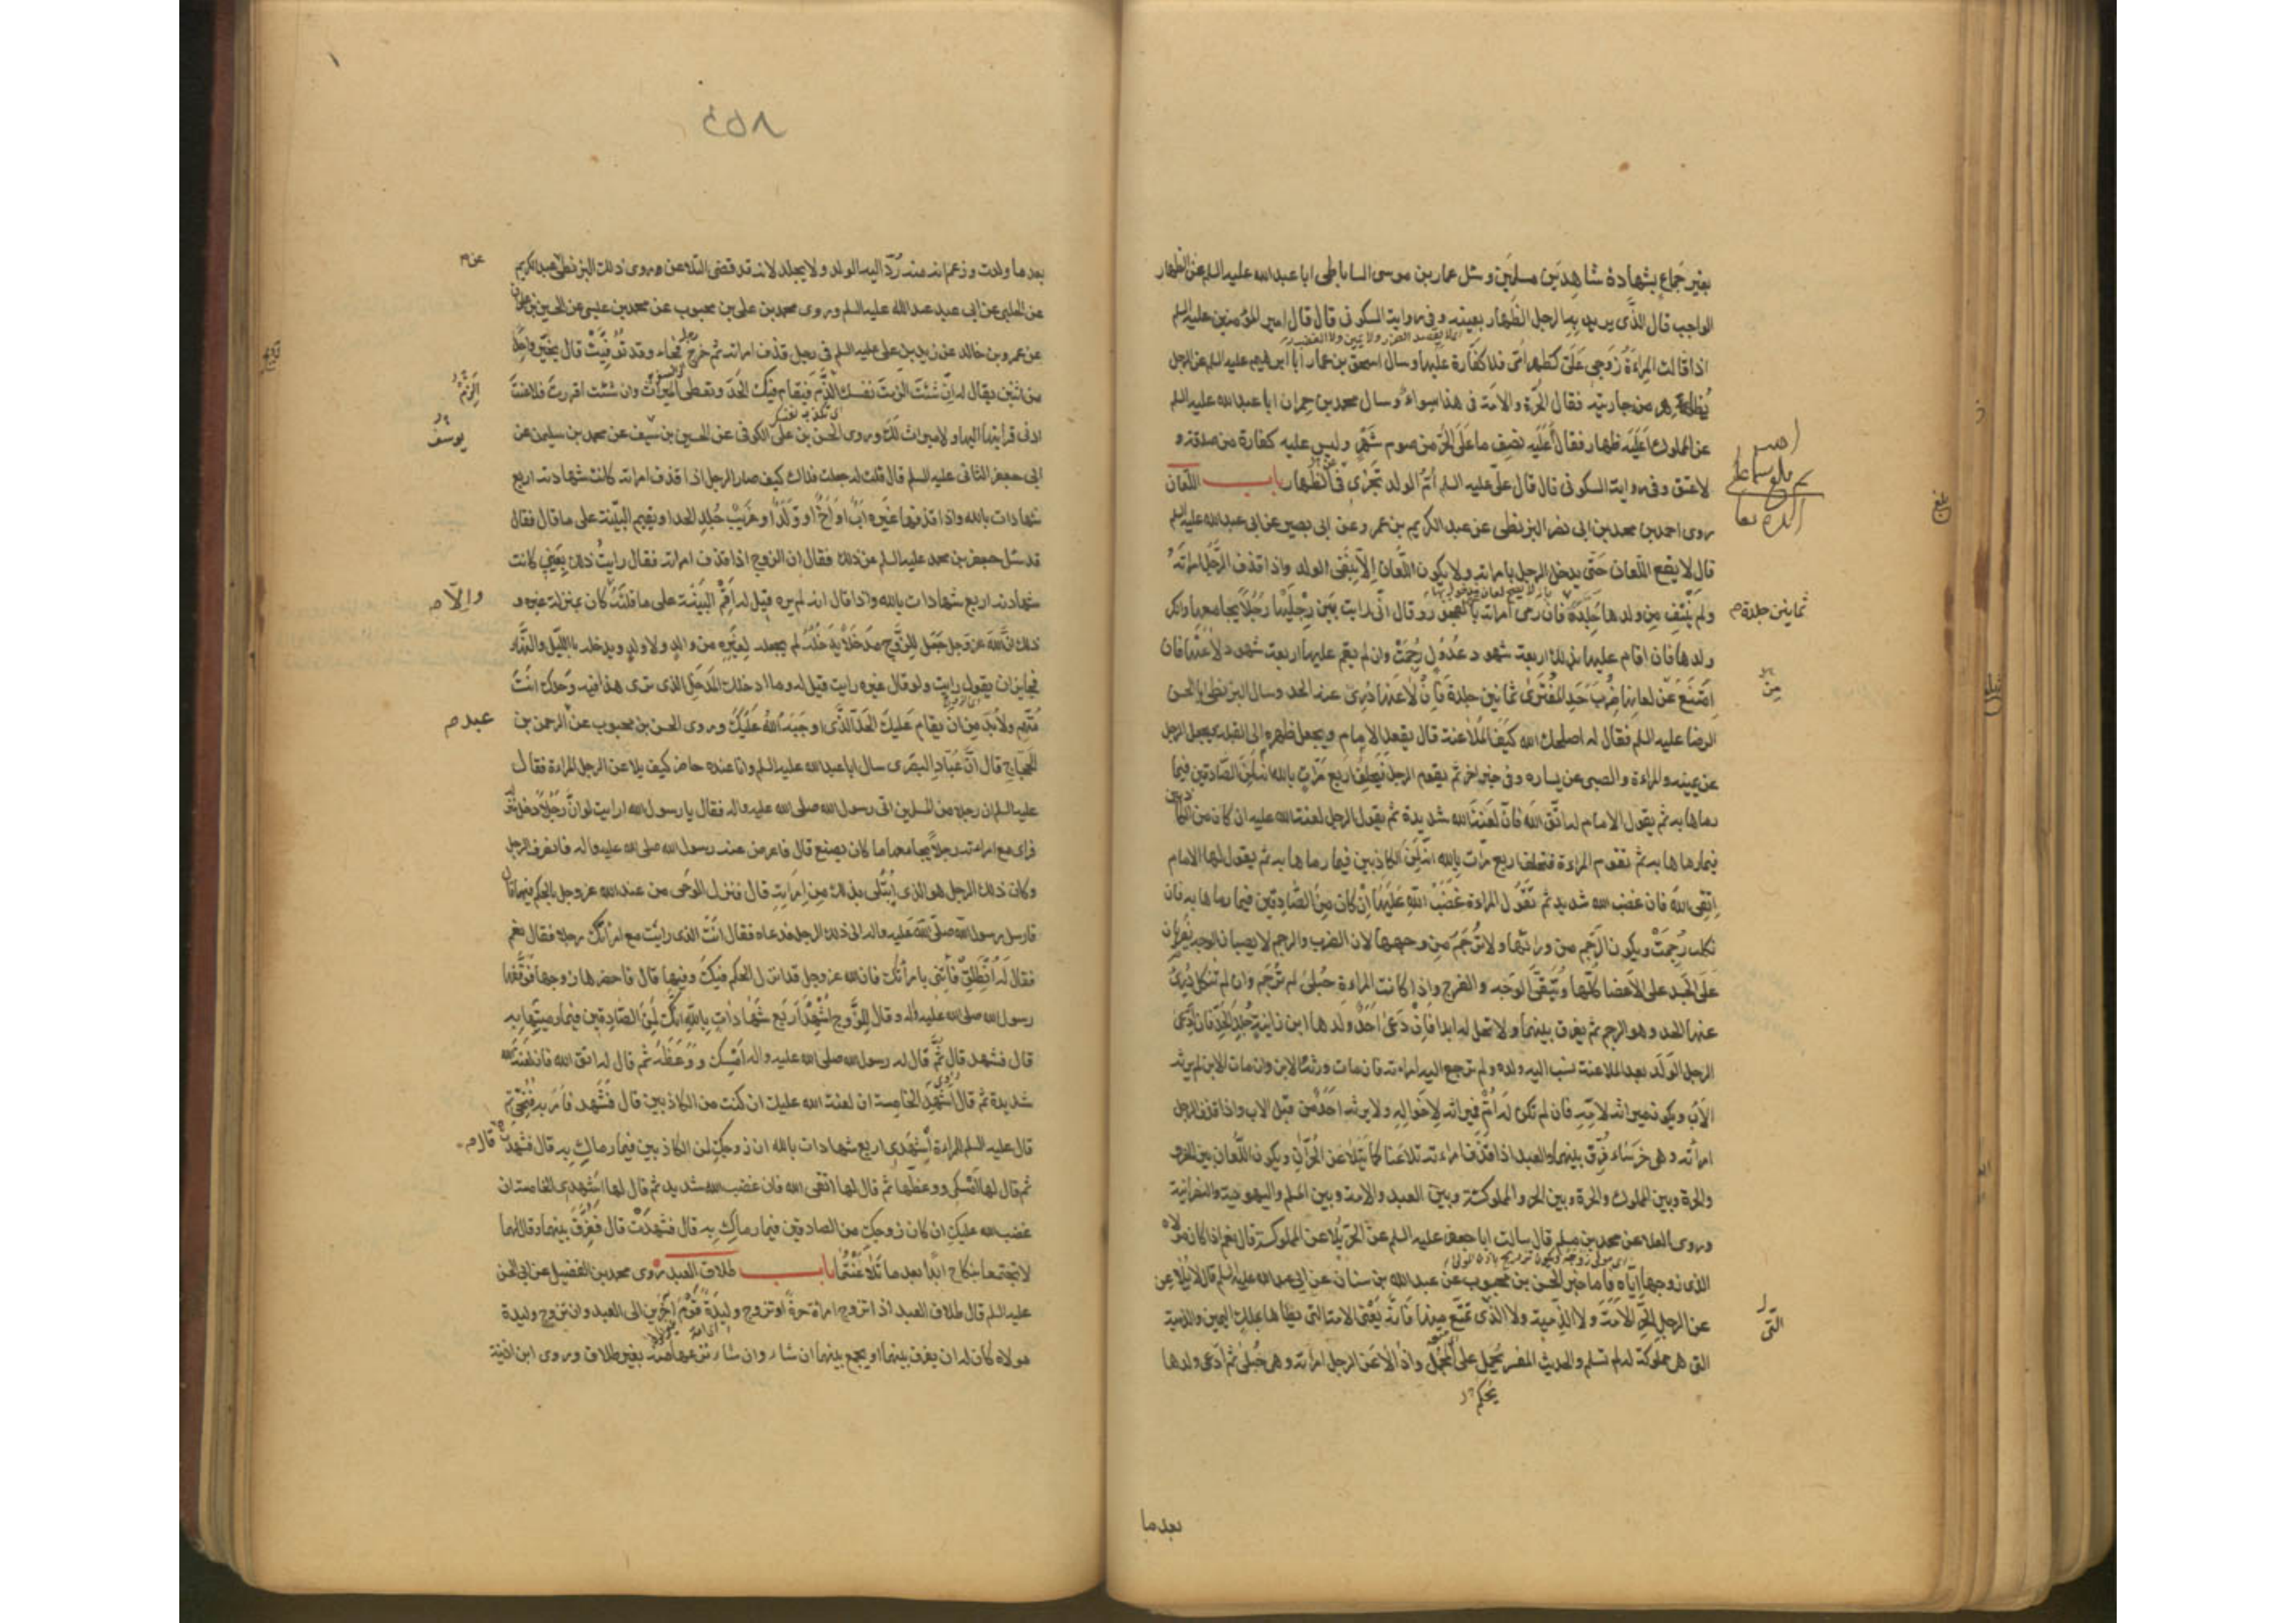 بغير جماع بشهادة شاهدين مسلمين وسئل عمار بن موسى الساباطى ابا عبدالله عليه السلم عن الظهار
الواجب قال الذى يريد به الرجل الظهار بعينه وفى رواية السكونى قال قال امير المؤمنين عليه السلم
اذا قالت المراءة زوجى علىّ كظهر امى فلا كفارة عليها وسال اسحق بن عمار ابا ابرهيم عليه السلم عن الرجل
يظاهر من جاريته فقال الحرة والامة فى هذا سواء وسال محمد بن حمران ابا عبدالله عليه السلم
عن المملوك اعليه ظهار فقال عليه نصف ما على الحر من صوم شهر وليس عليه كفارة من صدقة و
لا عتق وفى رواية السكونى قال قال على عليه السلم ام الولد تجزى فى الظهار باب اللعان
روى احمد بن محمد بن ابى نصر البزنطى عن عبد الكريم بن عمر وعن ابى بصير عن ابى عبدالله عليه السلم
قال لا يقع اللعان حتى يدخل الرجل بامراته ولا يكون اللعان الا بنفى الولد واذا قذف الرجل امراته
ولم ينتف من ولدها جلد فان رمى امراته بالفجور وقال انى رايت بين رجليها رجلا يجامعها وانكر
ثمانين جلدة
ولدها فان اقام عليها بذلك اربعة شهود عدول رجمت وان لم يقم عليها اربعة شهود لاعنها فان
امتنع عن لعانها ضرب حد المفترى ثمانين جلدة فان لاعنها درئ عنه الحد وسال البزنطى ابا الحسن
من
الرضا عليه السلم فقال له اصلحك الله كيف الملاعنة قال يقعد الامام ويجعل ظهره الى القبلة ويجعل الرجل
عن يمينه والمراءة والصبى عن يساره وفى خبر اخر ثم يقوم الرجل فيحلف اربع مرات بالله انه لمن الصادقين فيما
رماها به ثم يقول الامام له اتق الله فان لعنة الله شديدة ثم يقول الرجل لعنة الله عليه ان كان من الكاذبين
فيما رماها به ثم تقوم المراءة فتحلف اربع مرات بالله انه لمن الكاذبين فيما رماها به ثم يقول لها الامام
اتقى الله فان غضب الله شديد ثم تقول المراءة غضب الله عليها ان كان من الصادقين فيما رماها به فان
نكلت رجمت ويكون الرجم من ورائها ولا ترجم من وجهها لان الضرب والرجم لا يصيبان الوجه يضربان
على الجسد على الاعضا كلها ويتقى الوجه والفرج واذا كانت المراءة حبلى لم ترجم وان لم تنكل درئ
عنها الحد وهو الرجم ثم يفرق بينهما ولا تحل له ابدا فان دعى احد ولدها ابن زانية جلد الحد فان ادعى
الرجل الولد بعد الملاعنة نسب اليه ولده ولم ترجع اليه امراءته فان مات ورثه الابن وان مات الابن لم يرثه
الاب ويكون ميراثه لامه فان لم تكن له ام فميراثه لاخواله ولا يرثه احد من قبل الاب واذا قذف الرجل
امراته وهى خرساء فرق بينهما والعبد اذا قذف امراءته تلاعنا كما يتلاعن الحران ويكون اللعان بين الحر
والحرة وبين المملوك والحرة وبين الحر والمملوكة وبين العبد والامة وبين المسلم واليهودية والنصرانية
وروى العلا عن محمد بن مسلم قال سالت ابا جعفر عليه السلم عن الحر يلاعن المملوكة قال نعم اذا كان مولاه
الذى زوجها اياه فاما خبر الحسن بن محبوب عن عبدالله بن سنان عن ابى عبدالله عليه السلم قال لا يلاعن
عن الرجل الحر الامة ولا الذمية ولا التى تمتع منها فانه يعنى الامة التى يطاها بملك اليمين والذمية
التى
التى هى مملوكة له لم تسلم والحديث المفسر يحمل على المجمل واذا لاعن الرجل امراته وهى حبلى ثم ادعى ولدها
يحكم
بعد ما
٤٥٨
بعد ما ولدت وزعم انه منه رد اليه الولد ولا يجلد لانه قد قضى التلاعن وروى ذلك البزنطى عن عبد الكريم
عن الحلبى عن ابى عبدالله عليه السلم وروى محمد بن على بن محبوب عن محمد بن عيسى عن الحسين بن علوان
عن عمرو بن خالد عن زيد بن على عليه السلم فى رجل قذف امراته ثم خرج فجاء وقد توفيت قال يخير واحدة
من اثنين يقال له ان شئت الزمت نفسك الذنب فيقام فيك الحد وتعطى الميراث وان شئت اقررت فلاعنت
ادنى قرابتها اليها ولا ميراث لك وروى الحسن بن على الكوفى عن الحسين بن سيف عن محمد بن سليمن عن
يوسف
ابى جعفر الثانى عليه السلم قال قلت له جعلت فداك كيف صار الرجل اذا قذف امراته كانت شهادته اربع
شهادات بالله واذا قذفها غيره اب او اخ او ولد او غريب جلد الحد او يقيم البينة على ما قال فقال
قد سئل جعفر بن محمد عليه السلم عن ذلك فقال ان الزوج اذا قذف امراته فقال رايت ذلك بعينى كانت
شهادته اربع شهادات بالله واذا قال انه لم يره قيل له اقم البينة على ما قلت كان بمنزلة غيره و
والّا
ذلك ان الله عز وجل جعل للزوج مدخلا يدخله لم يجعله لغيره من والد ولا ولد ويدخله بالليل والنهار
فجايز ان يقول رايت ولو قال غيره رايت قيل له وما ادخلك المدخل الذى ترى هذا فيه وحدك انت
متهم ولا بد من ان يقام عليك الحد الذى اوجبه الله عليك وروى الحسن بن محبوب عن الرحمن بن
عبد
الحجاج قال ان عباد البصرى سال ابا عبدالله عليه السلم وانا عنده حاضر كيف يلاعن الرجل المراءة فقال
عليه السلم ان رجلا من المسلمين اتى رسول الله صلى الله عليه واله فقال يا رسول الله ارايت لو ان رجلا دخل منزله
فراى مع امراءته رجلا يجامعها ما كان يصنع قال فاعرض عنه رسول الله صلى الله عليه واله فانصرف الرجل
وكان ذلك الرجل هو الذى ابتلى بذلك من امراته قال فنزل الوحى من عند الله عز وجل بالحكم فيهما قال
فارسل رسول الله صلى الله عليه واله الى ذلك الرجل فدعاه فقال انت الذى رايت مع امراتك رجلا فقال نعم
فقال له انطلق فأتنى بامرأتك فان الله عز وجل قد انزل الحكم فيك وفيها قال فاحضرها زوجها فوقفها
رسول الله صلى الله عليه واله وقال للزوج اشهد اربع شهادات بالله انك لمن الصادقين فيما رميتها به
قال فشهد قال ثم قال له رسول الله صلى الله عليه واله امسك ووعظه ثم قال له اتق الله فان لعنة الله
شديدة ثم قال اشهد الخامسة ان لعنة الله عليك ان كنت من الكاذبين قال فشهد فامر به فنحى ثم
قال عليه السلم للمراءة اشهدى اربع شهادات بالله ان زوجك لمن الكاذبين فيما رماك به قال فشهدت
قال
ثم قال لها امسكى ووعظها ثم قال لها اتقى الله فان غضب الله شديد ثم قال لها اشهدى الخامسة ان
غضب الله عليك ان كان زوجك من الصادقين فيما رماك به قال فشهدت قال ففرق بينهما وقال لهما
لا تجتمعا بنكاح ابدا بعد ما تلاعنتما باب طلاق العبد روى محمد بن الفضيل عن ابى الحسن
عليه السلم قال طلاق العبد اذا تزوج امراة حرة او تزوج وليدة قوم اخرين الى العبد وان تزوج وليدة
مولاه كان له ان يفرق بينهما او يجمع بينهما ان شاء وان شاء نزعها منه بغير طلاق وروى ابن اذينة